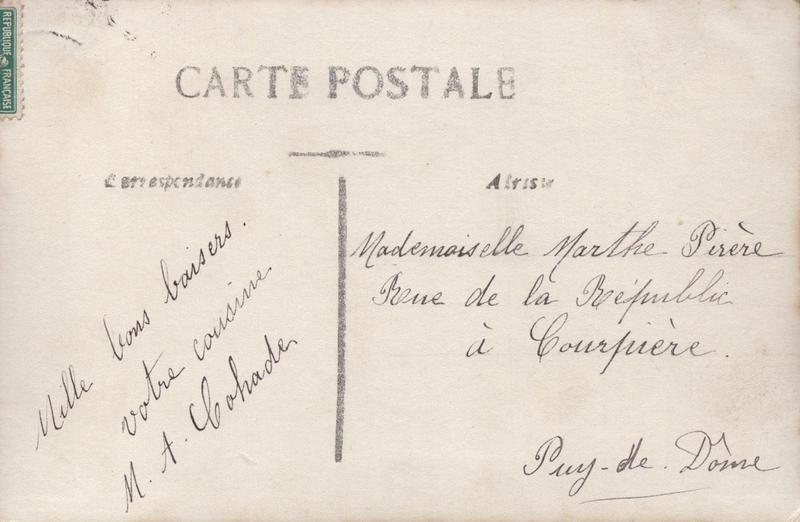 RÉPUBLIQUE FRANÇAISE
CARTE POSTALE
Correspondance
Adresse
Mille bons baisers.
votre cousine
M. A. Cohade
Mademoiselle Marthe Pirère
Rue de la Républic
à Courpière.
Puy-de-Dôme